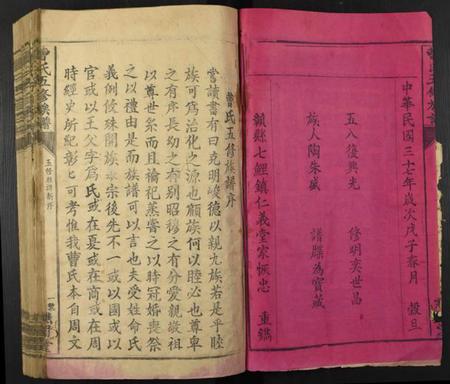 中華民國三十七年歲次戊子春月 穀旦
五八復興先 修明奕世昌
族人陶朱盛 譜牒為寶藏
贛縣七鯉鎮仁義堂家恢忠 重鐫
曹氏五修族譜序
嘗讀書有曰克明峻德以親九族若是乎睦
族可為治化之源也顧族何以睦必也尊卑
之有序長幼之有別昭穆之有分愛親敬祖
以尊世系而且禴祀蒸嘗之以時冠婚喪祭
之以禮由是而族譜可以言也夫受姓命氏
義例攸殊開族承宗後先不一或以國或以
官或以王父字為氏或在夏或在商或在周
時經史所紀彰彰可考惟我曹氏本自周文
曹氏五修族譜
五修族譜新序